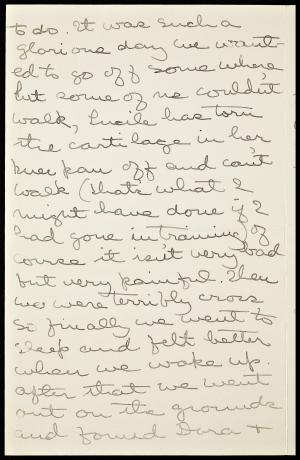 to do. It was such a
glorious day we want-
ed to go off some where
but some of us couldn't
walk, Lucile has torn
the cartilage in her
knee pan off and can't
walk (thats what I
might have done if I
had gone in training) of
course it isn't very bad
but very painful. Then
we were terribly cross
so finally we went to
sleep and felt better
when we woke up.
after that we went
out on the grounds
and found Dora +